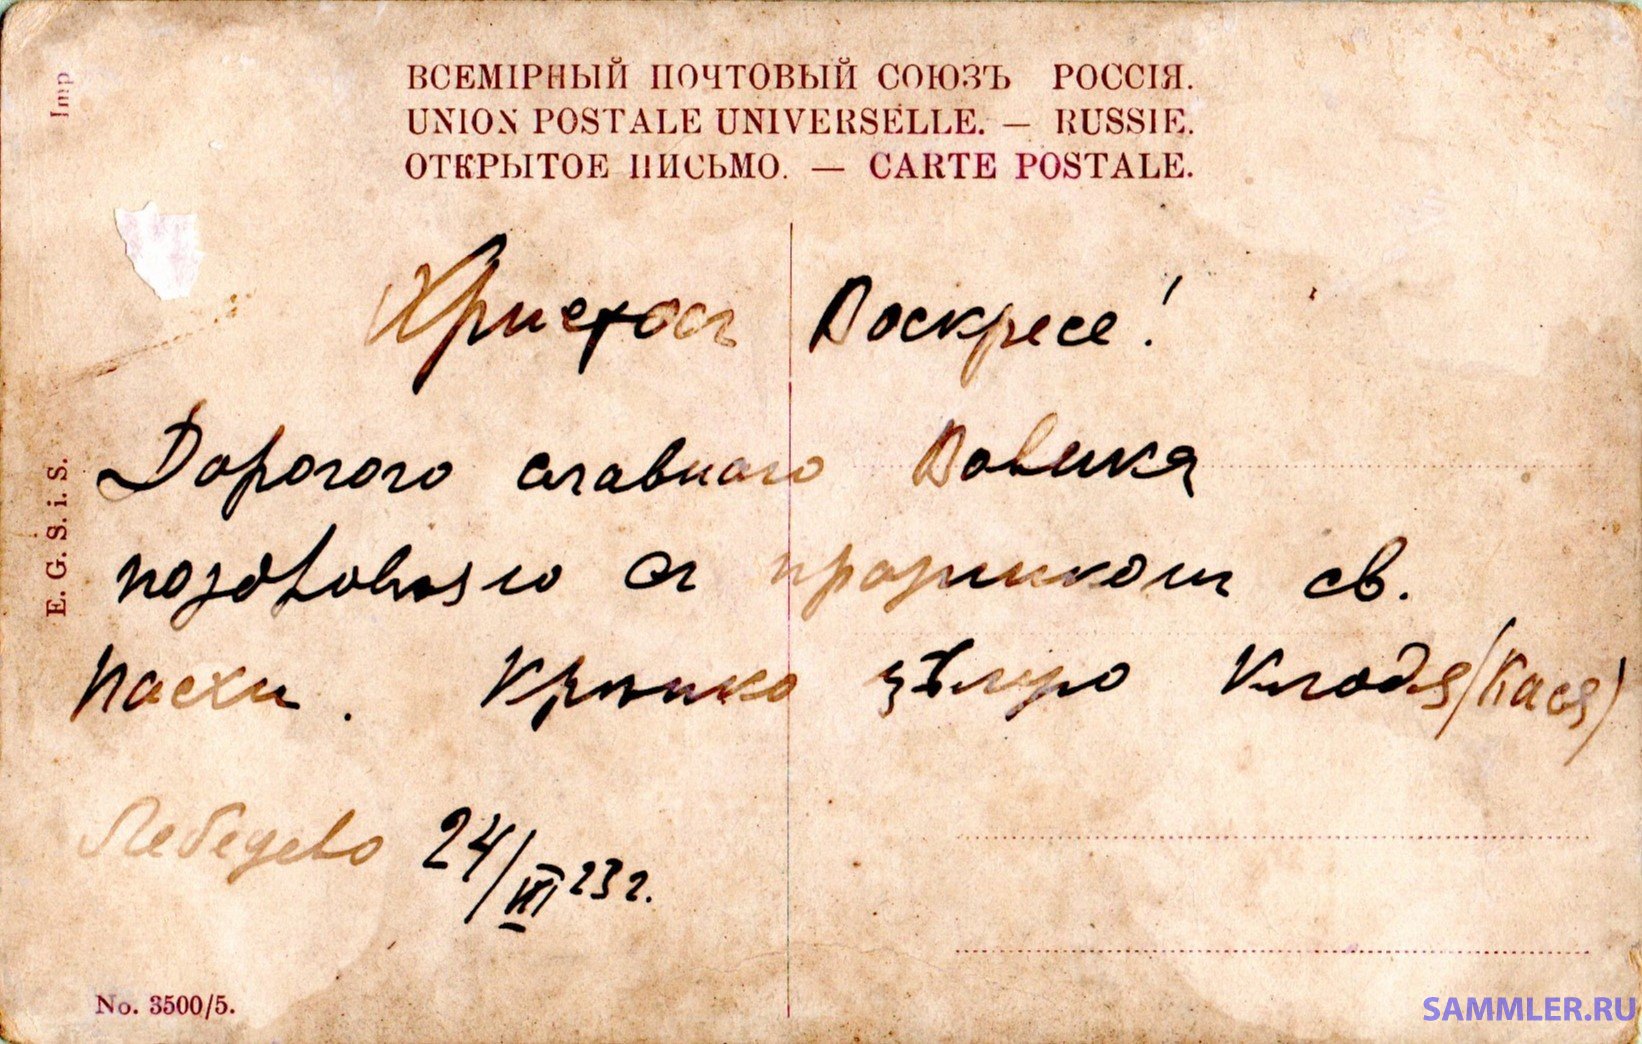 ВСЕМІРНЫЙ ПОЧТОВЫЙ СОЮЗЪ РОССІЯ.
UNION POSTALE UNIVERSELLE. — RUSSIE.
ОТКРЫТОЕ ПИСЬМО. — CARTE POSTALE.
Imp
E. G. S. i. S.
Христосъ Воскресе!
Дорогого славнаго Вовика
поздровляю съ праздникомъ св.
Пасхи. Крѣпко цѣлую Клодя (Кася)
Лебедево 24/III 23 г.
No. 3500/5.
SAMMLER.RU